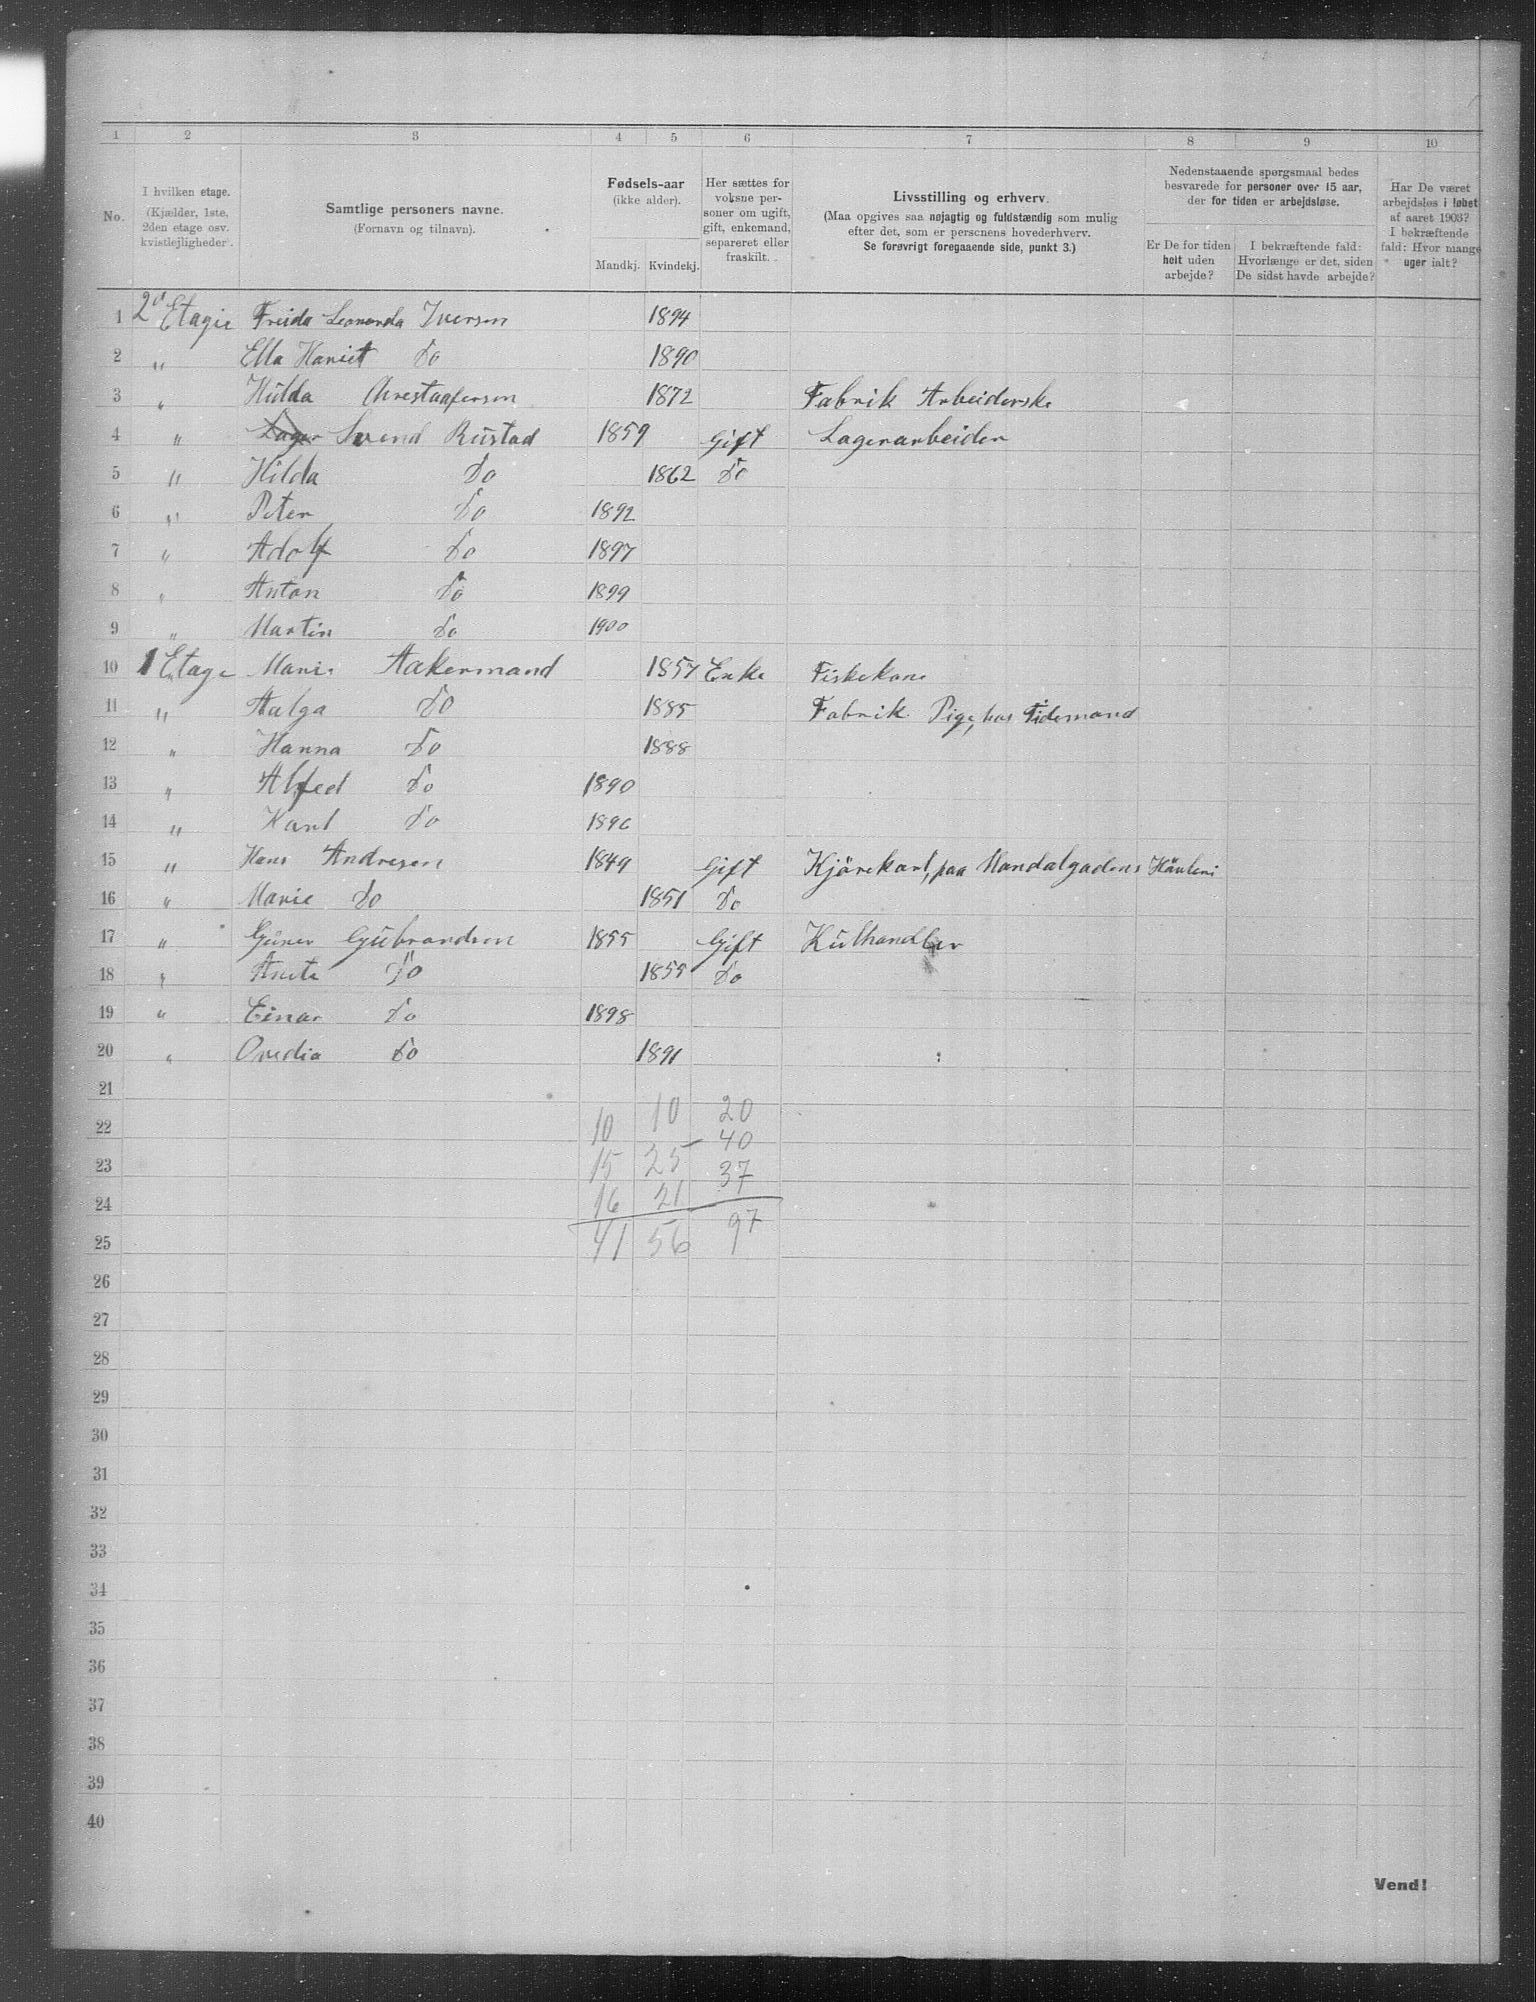 1 2 3 4 5 6 7 8 9 10
No.
I hvilken etage.
(Kjælder, 1ste,
2den etage osv.
kvistlejligheder).
Samtlige personers navne.
(Fornavn og tilnavn).
Fødsels-aar
(ikke alder).
Mandkj. Kvindekj.
Her sættes for
voksne per-
soner om ugift,
gift, enkemand,
separeret eller
fraskilt.
Livsstilling og erhverv.
(Maa opgives saa nøjagtig og fuldstændig som mulig
efter det, som er personens hovederhverv.
Se forøvrigt foregaaende side, punkt 3.)
Nedenstaaende spørgsmaal bedes
besvarede for personer over 15 aar,
der for tiden er arbejdsløse.
Er De for tiden
helt uden
arbejde?
I bekræftende fald:
Hvorlænge er det, siden
De sidst havde arbejde?
Har De været
arbejdsløs i løbet
af aaret 1903?
I bekræftende
fald: Hvor mange
uger ialt?
1 2d Etagie Freida Leonanda Iversen 1894
2 " Ella Hariet Do 1890
3 " Hulda Chrestaafersen 1872 Fabrik Arbeiderske
4 " Svend Rustad 1859 Gift Lagerarbeider
5 " Hilda Do 1862 Do
6 " Peter Do 1892
7 " Adolf Do 1897
8 " Anton Do 1899
9 " Martin Do 1900
10 1 Etage Marie Aakermand 1857 Enke Fiskekone
11 " Aalga Do 1885 Fabrik Pige, hos Tidemand
12 " Hanna Do 1888
13 " Alfed Do 1890
14 " Karl Do 1896
15 " Hans Andresen 1849 Gift Kjørekarl, paa Mandalgadens
16 " Marie Do 1851 Do
17 " Gubrandsen 1855 Gift Kulhandler
18 " Do 1855 Do
19 " Einar Do 1898
20 " Ovedia Do 1891
21
22 10 10 20
40
23 15 25 37
24 16 21
25 41 56 97
26
27
28
29
30
31
32
33
34
35
36
37
38
39
40
Vend!